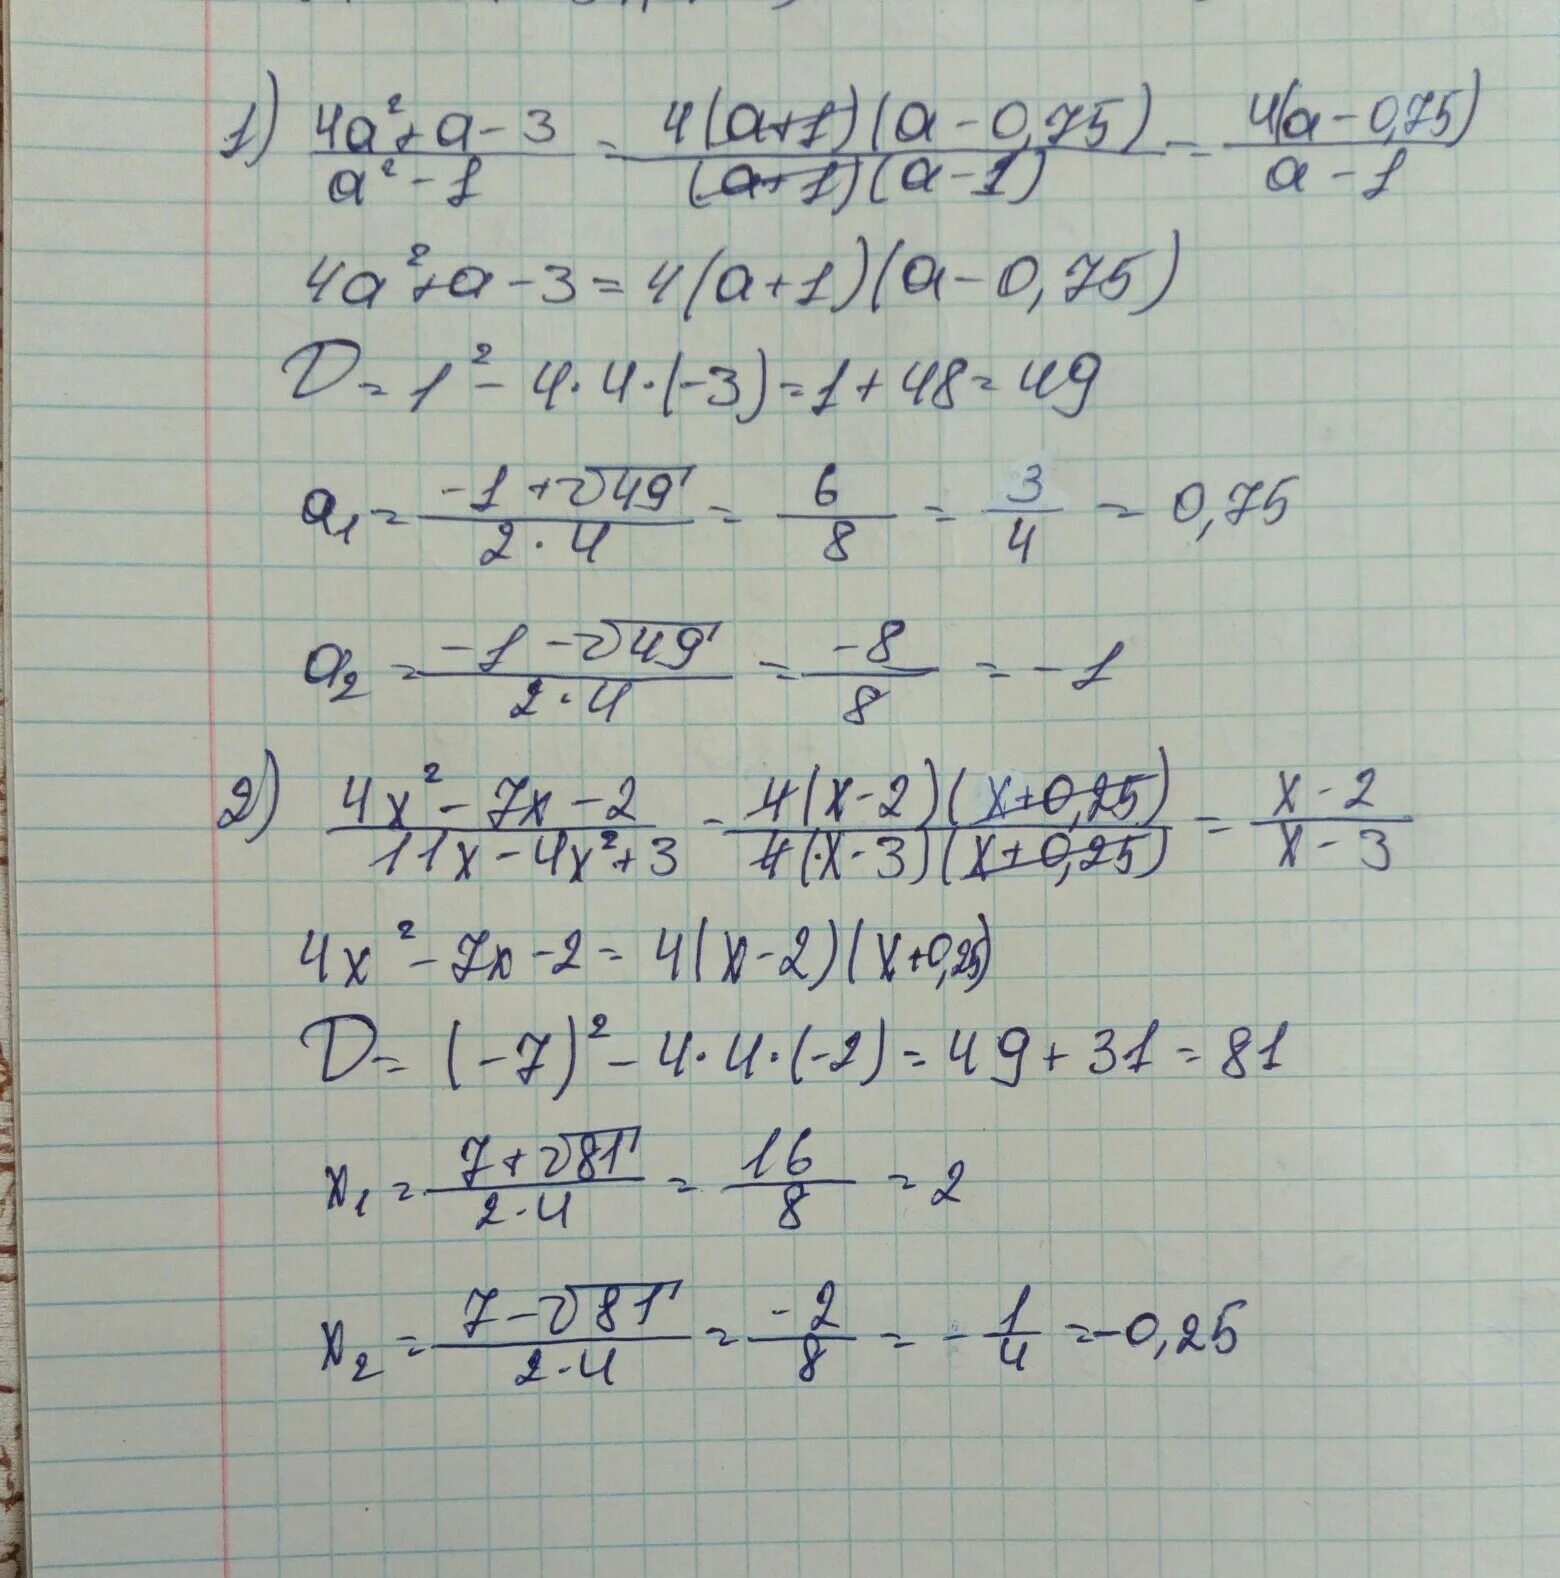 1) (4a²+a-3)/(a²-1) = (4(a+1)(a-0,75))/((a+1)(a-1)) = (4(a-0,75))/(a-1)
4a²+a-3=4(a+1)(a-0,75)
D=1²-4·4·(-3)=1+48=49
a₁=(-1+√49)/(2·4) = 6/8 = 3/4 = 0,75
a₂=(-1-√49)/(2·4) = -8/8 = -1
2) (4x²-7x-2)/(11x-4x²+3) - (4(x-2)(x+0,25))/(4(x-3)(x+0,25)) = (x-2)/(x-3)
4x²-7x-2=4(x-2)(x+0,25)
D=(-7)²-4·4·(-2)=49+31=81
x₁=(7+√81)/(2·4) = 16/8 = 2
x₂=(7-√81)/(2·4) = -2/8 = -1/4 =-0,25